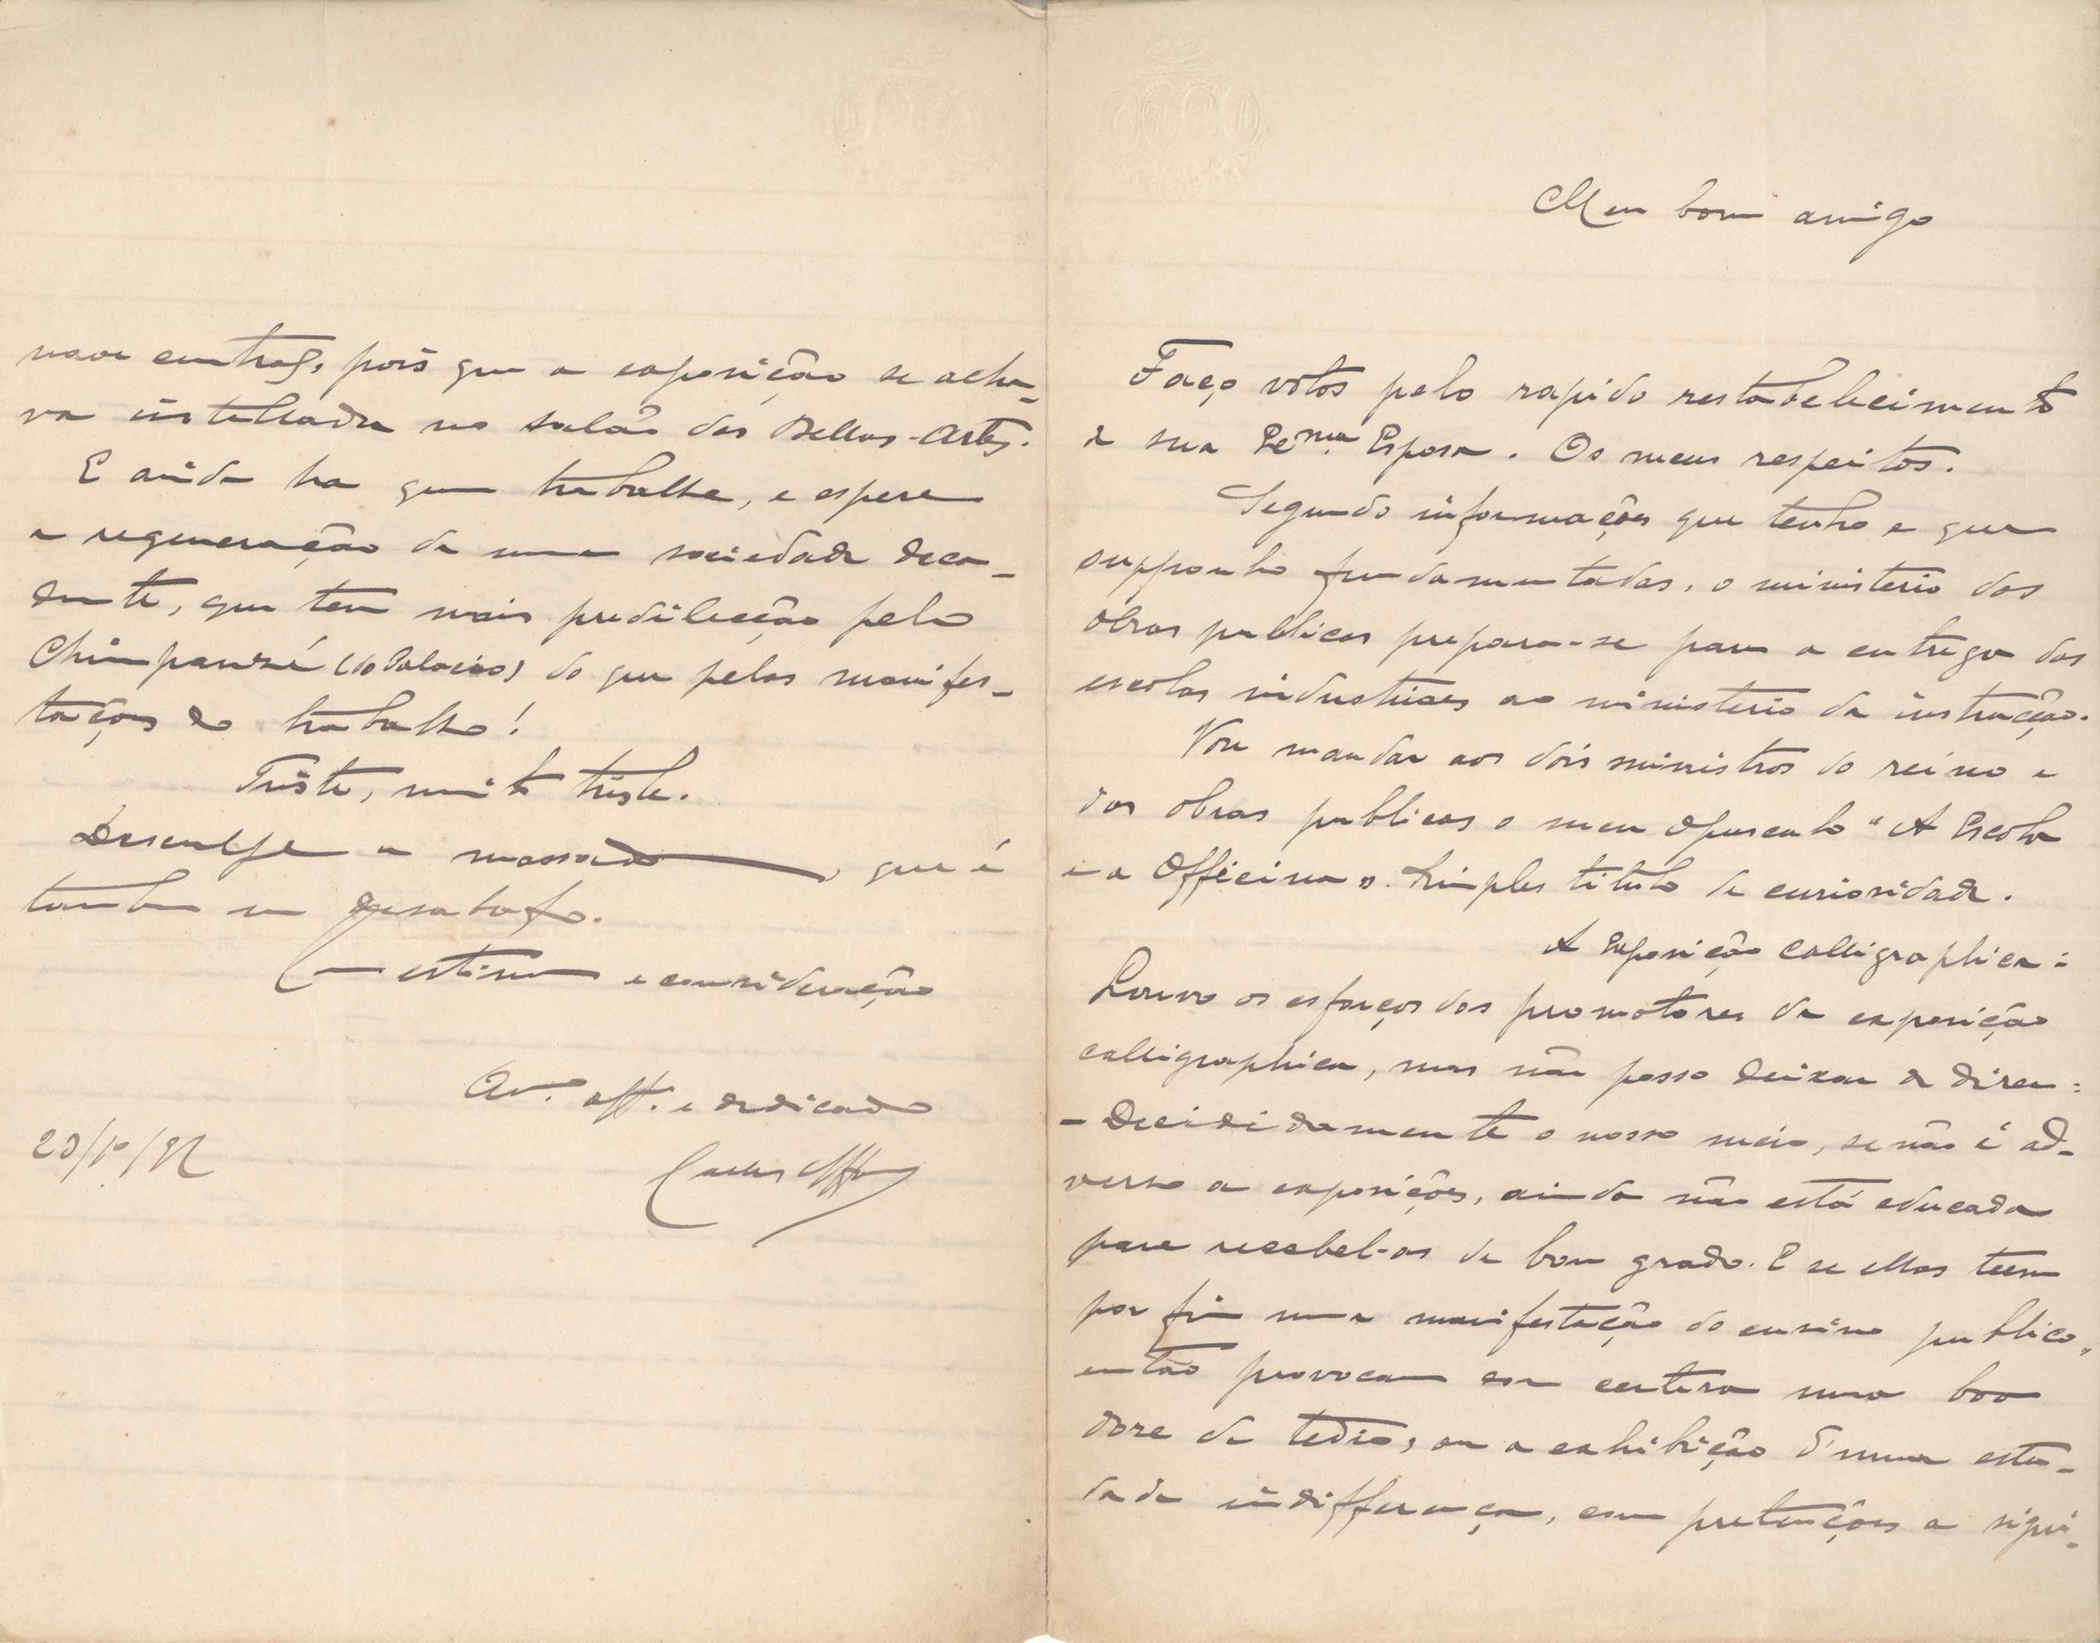 Meu bom amigo
Faço votos pelo rapido restabelecimento
de sua Ex.ma Esposa. Os meus respeitos.
Segundo informações que tenho e que
supponho fundamentadas, o ministerio das
obras publicas prepara-se para a entrega das
escolas industriaes ao ministerio da instrucção.
Vou mandar aos dois ministros do reino e
das obras publicas o meu opusculo "A Escola
e a Officina". Simples titulo de curiosidade.
A Exposição Calligraphica:
Louvo os esforços dos promotores da exposição
calligraphica, mas não posso deixar de dizer:
- Decididamente o nosso meio, se não é ad-
verso a exposições, ainda não está educado
para recebel-as de bom grado. E se ellas teem
por fim uma manifestação do ensino publico,
então provocam com certeza uma
de tedio, ou a exhibição d'uma estu-
dada indifferença, com pretenções a signi-
pois que a exposição se acha-
va installada no salão das Bellas-Artes.
E ainda ha quem trabalhe, e espere
a regeneração de uma sociedade deca-
dente, que tem mais predilecção pelo
Chimpanzé (do Palacio) do que pelas manifes-
tações do trabalho!
Triste, muito triste.
Desculpe a massada, que é
tambem um desabafo.
Com estima e consideração
Am.o aff. e dedicado